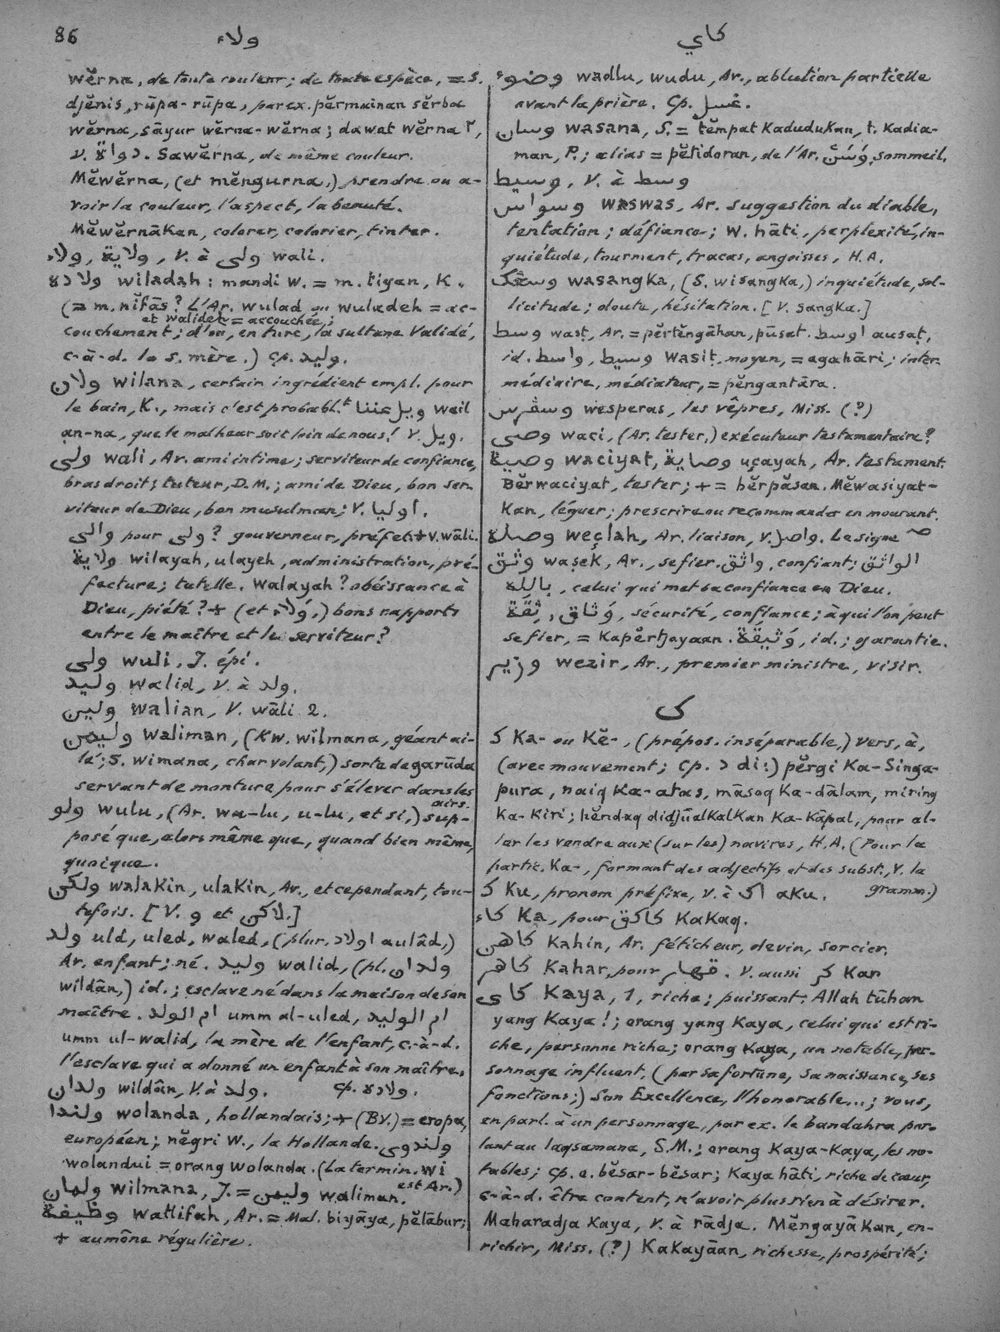 86
ولاء
كاي
wĕrna, de toute couleur; de toute espèce, = S.
djĕnis, rūpa-rūpa, par ex. pĕrmainan sĕrba
wĕrna, sāyur wĕrna-wĕrna; dawat wĕrna ٢,
v. دواة. Sawĕrna, de même couleur.
Mĕwĕrna, (et mĕngurna,) prendre ou a-
voir la couleur, l'aspect, la beauté.
Mĕwĕrnākan, colorer, colorier, tinter.
ولاء, ولاية, v. à ولى wali.
ولاده wiladah: mandi w. = m. tiyan, K.
(= m. nifās? L'Ar. wulad ou wuladeh = ac-
et walidet = accouchée;
couchement; d'où, en turc, la sultane Validé,
c-à-d. la s. mère.) Cp. وليد.
ولان wilana, certain ingrédient empl. pour
le bain, K., mais c'est probabl.t ويل عننا wail
an-na, que le malheur soit loin de nous! V. ويل.
ولى wali, Ar. ami intime; serviteur de confiance,
bras droit; tuteur, D.M.; ami de Dieu, bon ser-
viteur de Dieu, bon musulman; V. اوليا.
والى pour ولى? gouverneur, préfet + v. wāli.
ولاية wilayah, ulayeh, administration, pré-
fecture; tutelle. Walayah? obéissance à
Dieu, piété? + (et وَلاء,) bons rapports
entre le maître et le serviteur?
ولى wuli, J. épi.
وليد walid, V. à ولد.
ولين walian, V. wāli 2.
وليمن waliman, (Kw. wilmana, géant ai-
lé; S. wimana, char volant,) sorte de garūda
servant de monture pour s'élever dans les
airs.
ولو wulu, (Ar. wa-lu, u-lu, et si,) sup-
posé que, alors même que, quand bien même,
quoique.
ولكن walakin, ulakin, Ar., et cependant, tou-
tefois. [V. و et لاكن.]
ولد uld, uled, waled, (plur. اولاد aulâd,)
Ar. enfant; né. وليد walid, (pl. ولدان
wildân,) id.; esclave né dans la maison de son
maître. ام الولد umm al-uled, ام الوليد
umm ul-walid, la mère de l'enfant, c.-à-d.
l'esclave qui a donné un enfant à son maître.
ولدان wildân, V. à ولد. Cp. ولاده.
ولندا wolanda, hollandais; + (BV.) = eropa,
européen; nĕgri W., la Hollande. ولندوى
wolandui = orang wolanda. (La termin. wi
est Ar.)
ولمان wilmana, J. = وليمن waliman.
وظيفة watlifah, Ar. = Mal. biyāya, pĕlābur;
+ aumône régulière.
وضوء wadlu, wudu, Ar., ablution partielle
avant la prière. Cp. غسل.
وسان wasana, S. = tĕmpat kadudukan, t. kadia-
man, P.; alias = pĕtidoran, de l'Ar. وَسَنٌ, sommeil.
وسيط, V. à وسط
وسواس waswas, Ar. suggestion du diable,
tentation; défiance; W. hāti, perplexité, in-
quiétude, tourment, tracas, angoisses, H.A.
وسڠك wasangka, (S. wisangka,) inquiétude, sol-
licitude; doute, hésitation. [V. sangka.]
وسط wasṭ, Ar. = pĕrtĕngāhan, pūsat. اوسط ausaṭ,
id. واسط, وسيط wasiṭ, moyen, = agahāri; inter-
médiaire, médiateur, = pĕngantāra.
وسڤرس wesperas, les vêpres, Miss. (?)
وصى waci, (Ar. tester,) exécuteur testamentaire?
وصية waciyat, وصاية uçayah, Ar. testament.
Bĕrwaciyat, tester; + = bĕrpāsan. Mĕwasiyat-
kan, léguer; prescrire ou recommander en mourant.
وصلة weçlah, Ar. liaison, v. واصل. Le signe ~
وثق waṣek, Ar., se fier. واثق, confiant; الواثق
بالله, celui qui met sa confiance en Dieu.
ثِقَة, وَثاق, sécurité, confiance; à qui l'on peut
se fier, = kapĕrtjayaan. وَثيقَة, id.; garantie.
وزير wezir, Ar., premier ministre, visir.
ك
ك ka- ou kĕ-, (prépos. inséparable,) vers, à,
(avec mouvement; cp. د di:) pĕrgi ka-Singa-
pura, naiq ka-atas, māsoq ka-dālam, miring
ka-kiri; hĕndaq didjūalkalkan ka-kāpal, pour al-
ler les vendre aux (sur les) navires, H.A. (Pour la
partic. ka-, formant des adjectifs et des subst., v. la
gramm.)
ك ku, pronom préfixe, v. à اك aku.
كاء Ka, pour كاكق kakaq.
كاهن kahin, Ar. féticheur, devin, sorcier.
كاهر kahar, pour قهار. V. aussi كر kar
كاي kaya, 1, riche; puissant: Allah tūhan
yang kaya!; orang yang kaya, celui qui est ri-
che, personne riche; orang kaya, un notable, per-
sonnage influent, (par sa fortune, sa naissance, ses
fonctions;) Son Excellence, l'honorable...; vous,
en parl. à un personnage, par ex. le bandahra par-
lant au laqsamana, S.M.; orang kaya-kaya, les no-
tables; cp. o. bĕsar-bĕsar; kaya hāti, riche de cœur,
c-à-d. être content, n'avoir plus rien à désirer.
Maharadja kaya, v. à rādja. Mĕngayākan, en-
richir, Miss. (?) Kakayāan, richesse, prospérité;